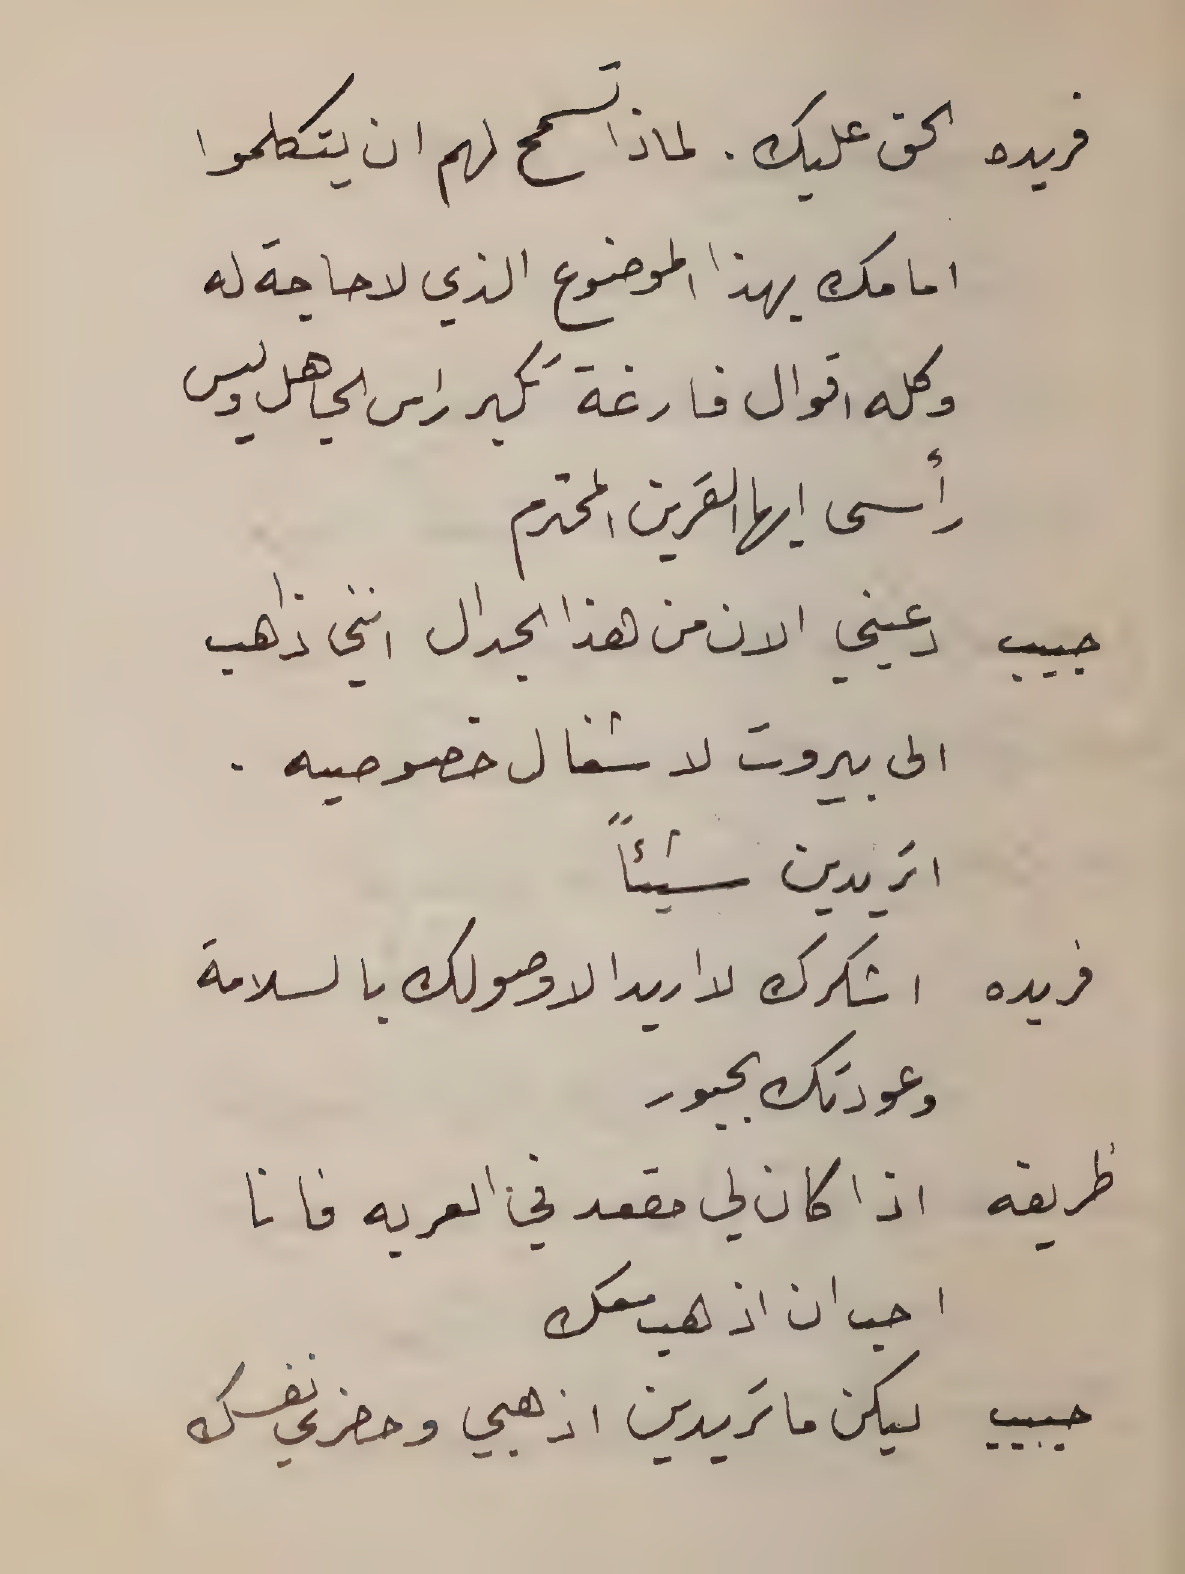 فريده الحق عليك. لماذا تسمح لهم ان يتكلموا
امامك بهذا الموضوع الذي لا حاجة له
وكله اقوال فارغة تكبر راس الجاهل وليس
رأسى ايها القرين المحترم
حبيب دعيني الان من هذا الجدال انني ذاهب
الى بيروت لا شغال خصوصيه .
اتريدين شيئاً
فريده اشكرك لا اريد الا وصولك بالسلامة
وعودتك بحبور
ظريفه اذا كان لي مقعد في العربه فانا
احب ان اذهب معك
حبيب ليكن ما تريدين اذهبي وحضري نفسك